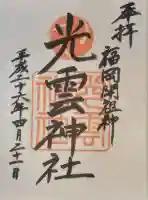 奉拝
福岡開祖神
光雲神社
平成二十六年四月二十一日